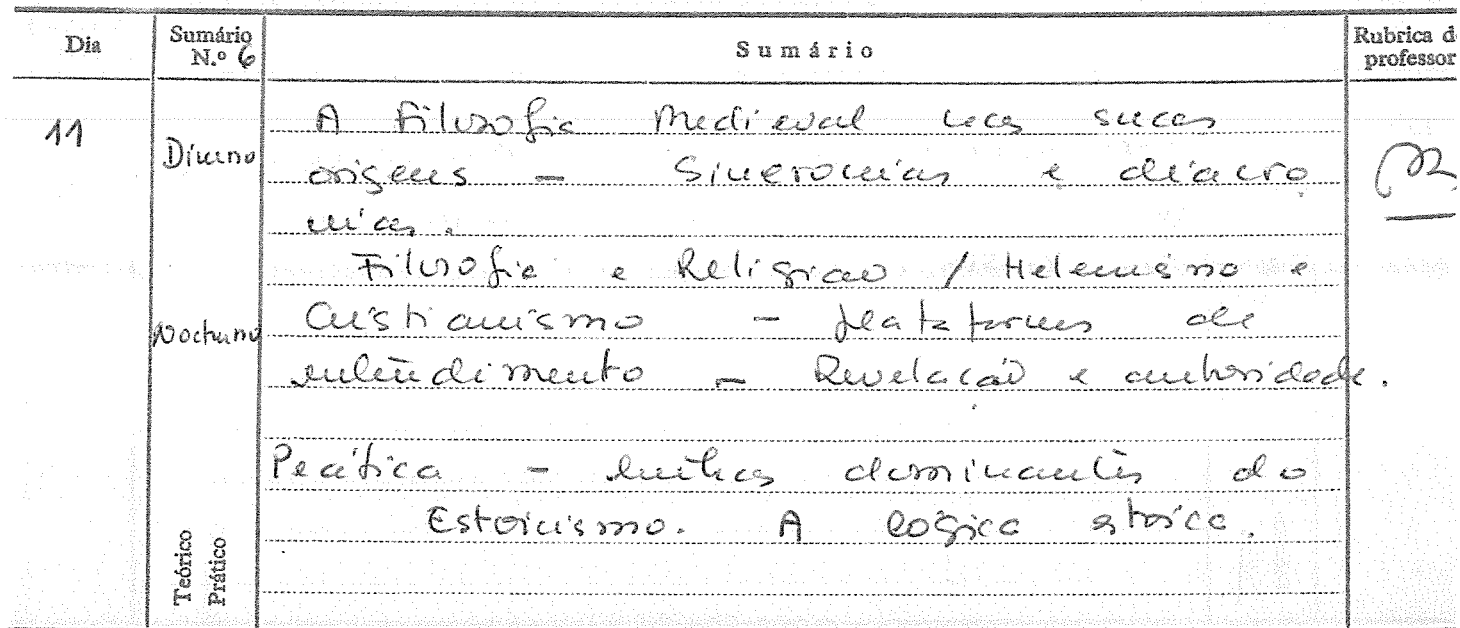 Dia
Sumário
N.º 6
Sumário
Rubrica d
professor
11
Diurno
A Filosofia Medieval nas suas
origens - Sincronias e diacro
nias.
Filosofia e Religião / Helenismo e
Nocturno
Cristianismo - plataformas de
entendimento - Revelação e autoridade.
Prática - linhas dominantes do
Estoicismo. A lógica estóica.
Teórico
Prático